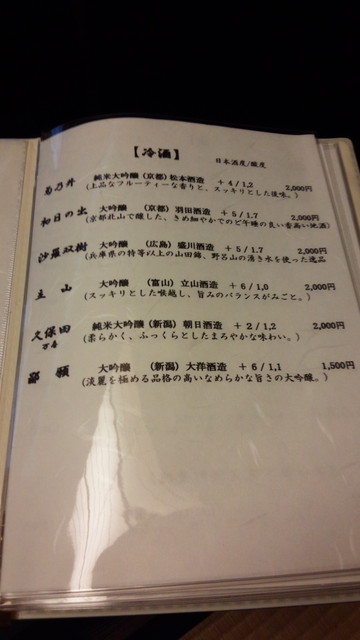 【冷酒】
日本酒度/酸度
純米大吟醸 (京都) 松本酒造 +4/1,2 2,000円
(上品なフルーティーな香りと、スッキリとした後味。)
初日の出 大吟醸 (京都) 羽田酒造 +5/1.7 2,000円
(京都北山で醸した、きめ細やかでのど午睡の良い香高い地酒)
沙羅双樹 大吟醸 (広島) 盛川酒造 +5/1.7 2,000円
(兵庫県の特等以上の山田錦、野呂山の湧き水を使った逸品
立山 大吟醸 (富山) 立山酒造 +6/1,0 2,000円
(スッキリとした喉越し、旨みのバランスがみごと。)
久保田 純米大吟醸 (新潟) 朝日酒造 +2/1,2 2,000円
万寿 (柔らかく、ふっくらとしたまろやかな味わい。)
鄙願 大吟醸 (新潟) 大洋酒造 +6/1,1 1,500円
(淡麗を極める品格の高いなめらかな旨さの大吟醸。)